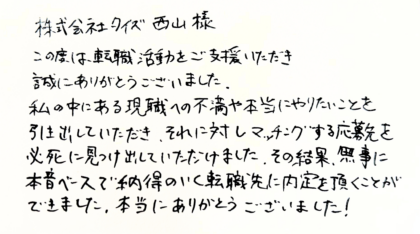 株式会社クイズ 西山様
この度は、転職活動をご支援いただき
誠にありがとうございました。
私の中にある現職への不満や本当にやりたいことを
引き出していただき、それに対しマッチングする応募先を
必死に見つけ出していただけました。その結果、無事に
本音ベースで納得のいく転職先に内定を頂くことが
できました。本当にありがとうございました！